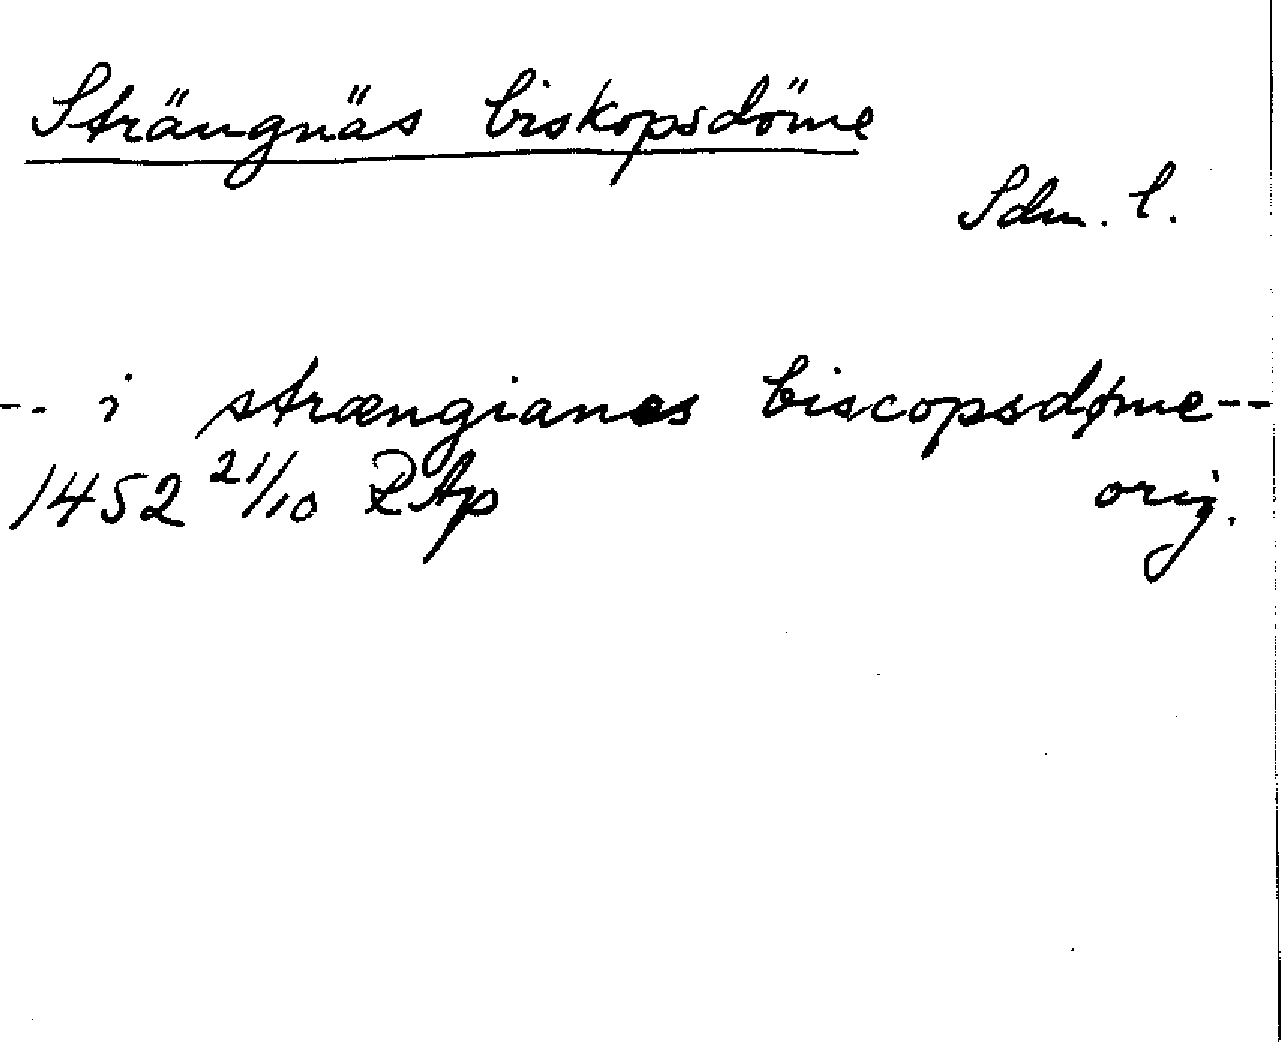 Strängnäs biskopsdöme
Sdm. l.
-- i strængianes biscopsdøme --
1452 21/10 RAp orig.